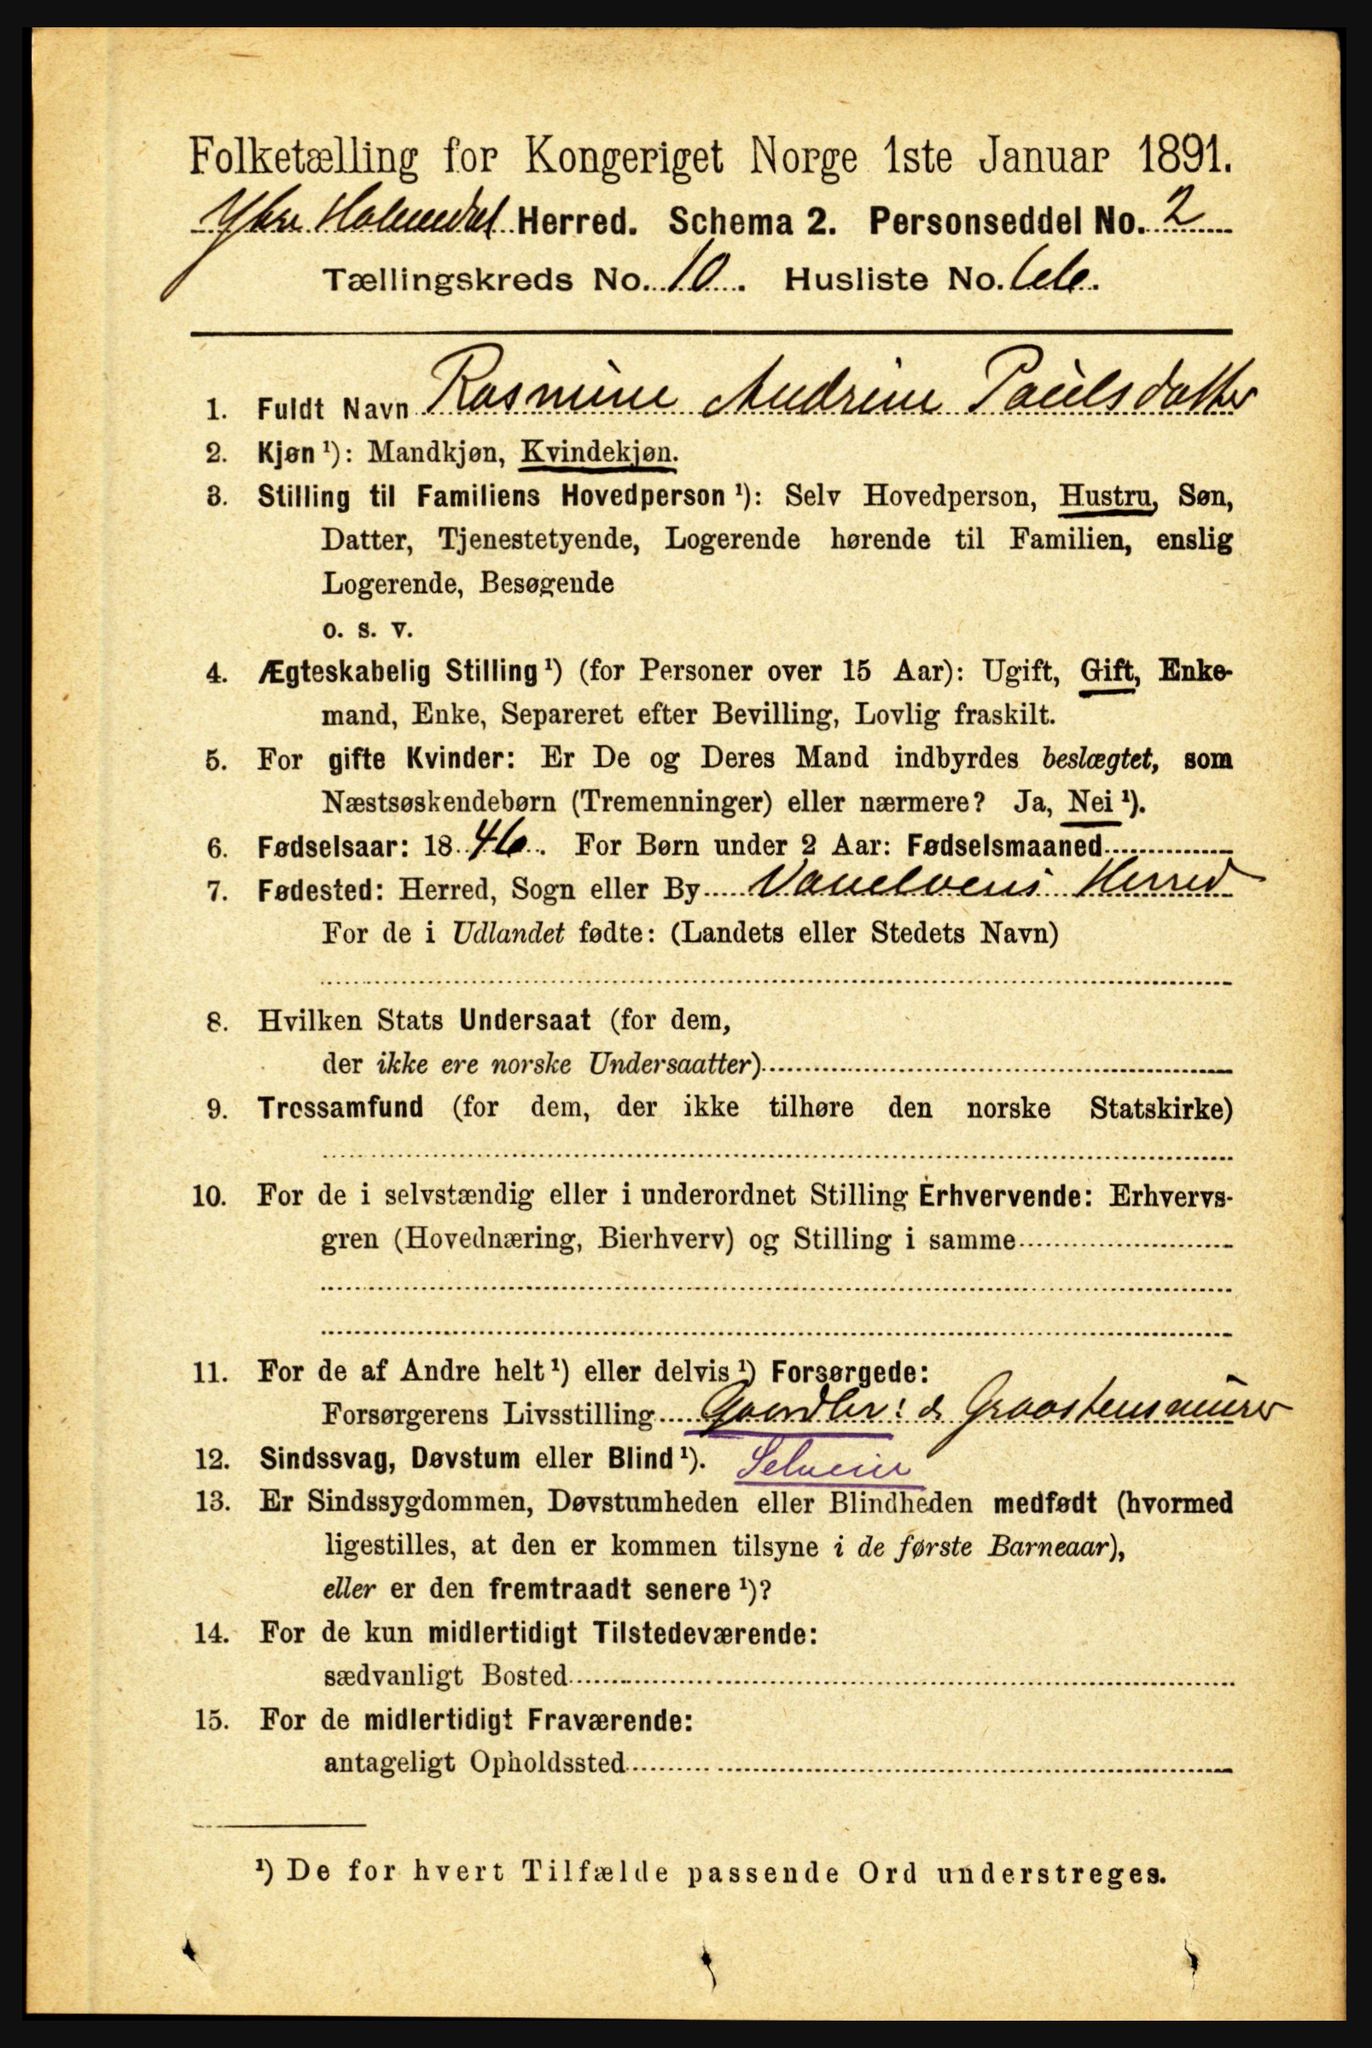 Folketælling for Kongeriget Norge 1ste Januar 1891.
Ytre Holmedal Herred. Schema 2. Personseddel No. 2
Tællingskreds No. 10. Husliste No. 66.
1. Fuldt Navn Rasmine Andrine Paulsdatter
2. Kjøn ¹): Mandkjøn, Kvindekjøn.
3. Stilling til Familiens Hovedperson ¹): Selv Hovedperson, Hustru, Søn,
Datter, Tjenestetyende, Logerende hørende til Familien, enslig
Logerende, Besøgende
o. s. v.
4. Ægteskabelig Stilling ¹) (for Personer over 15 Aar): Ugift, Gift, Enke-
mand, Enke, Separeret efter Bevilling, Lovlig fraskilt.
5. For gifte Kvinder: Er De og Deres Mand indbyrdes beslægtet, som
Næstsøskendebørn (Tremenninger) eller nærmere? Ja, Nei ¹).
6. Fødselsaar: 1846. For Børn under 2 Aar: Fødselsmaaned
7. Fødested: Herred, Sogn eller By Vanelvens Herred
For de i Udlandet fødte: (Landets eller Stedets Navn)
8. Hvilken Stats Undersaat (for dem,
der ikke ere norske Undersaatter)
9. Trossamfund (for dem, der ikke tilhøre den norske Statskirke)
10. For de i selvstændig eller i underordnet Stilling Erhvervende: Erhvervs-
gren (Hovednæring, Bierhverv) og Stilling i samme
11. For de af Andre helt ¹) eller delvis ¹) Forsørgede:
Forsørgerens Livsstilling Gaardbr: & Graastensmurer
12. Sindssvag, Døvstum eller Blind ¹). Selveier
13. Er Sindssygdommen, Døvstumheden eller Blindheden medfødt (hvormed
ligestilles, at den er kommen tilsyne i de første Barneaar),
eller er den fremtraadt senere ¹)?
14. For de kun midlertidigt Tilstedeværende:
sædvanligt Bosted
15. For de midlertidigt Fraværende:
antageligt Opholdssted
¹) De for hvert Tilfælde passende Ord understreges.